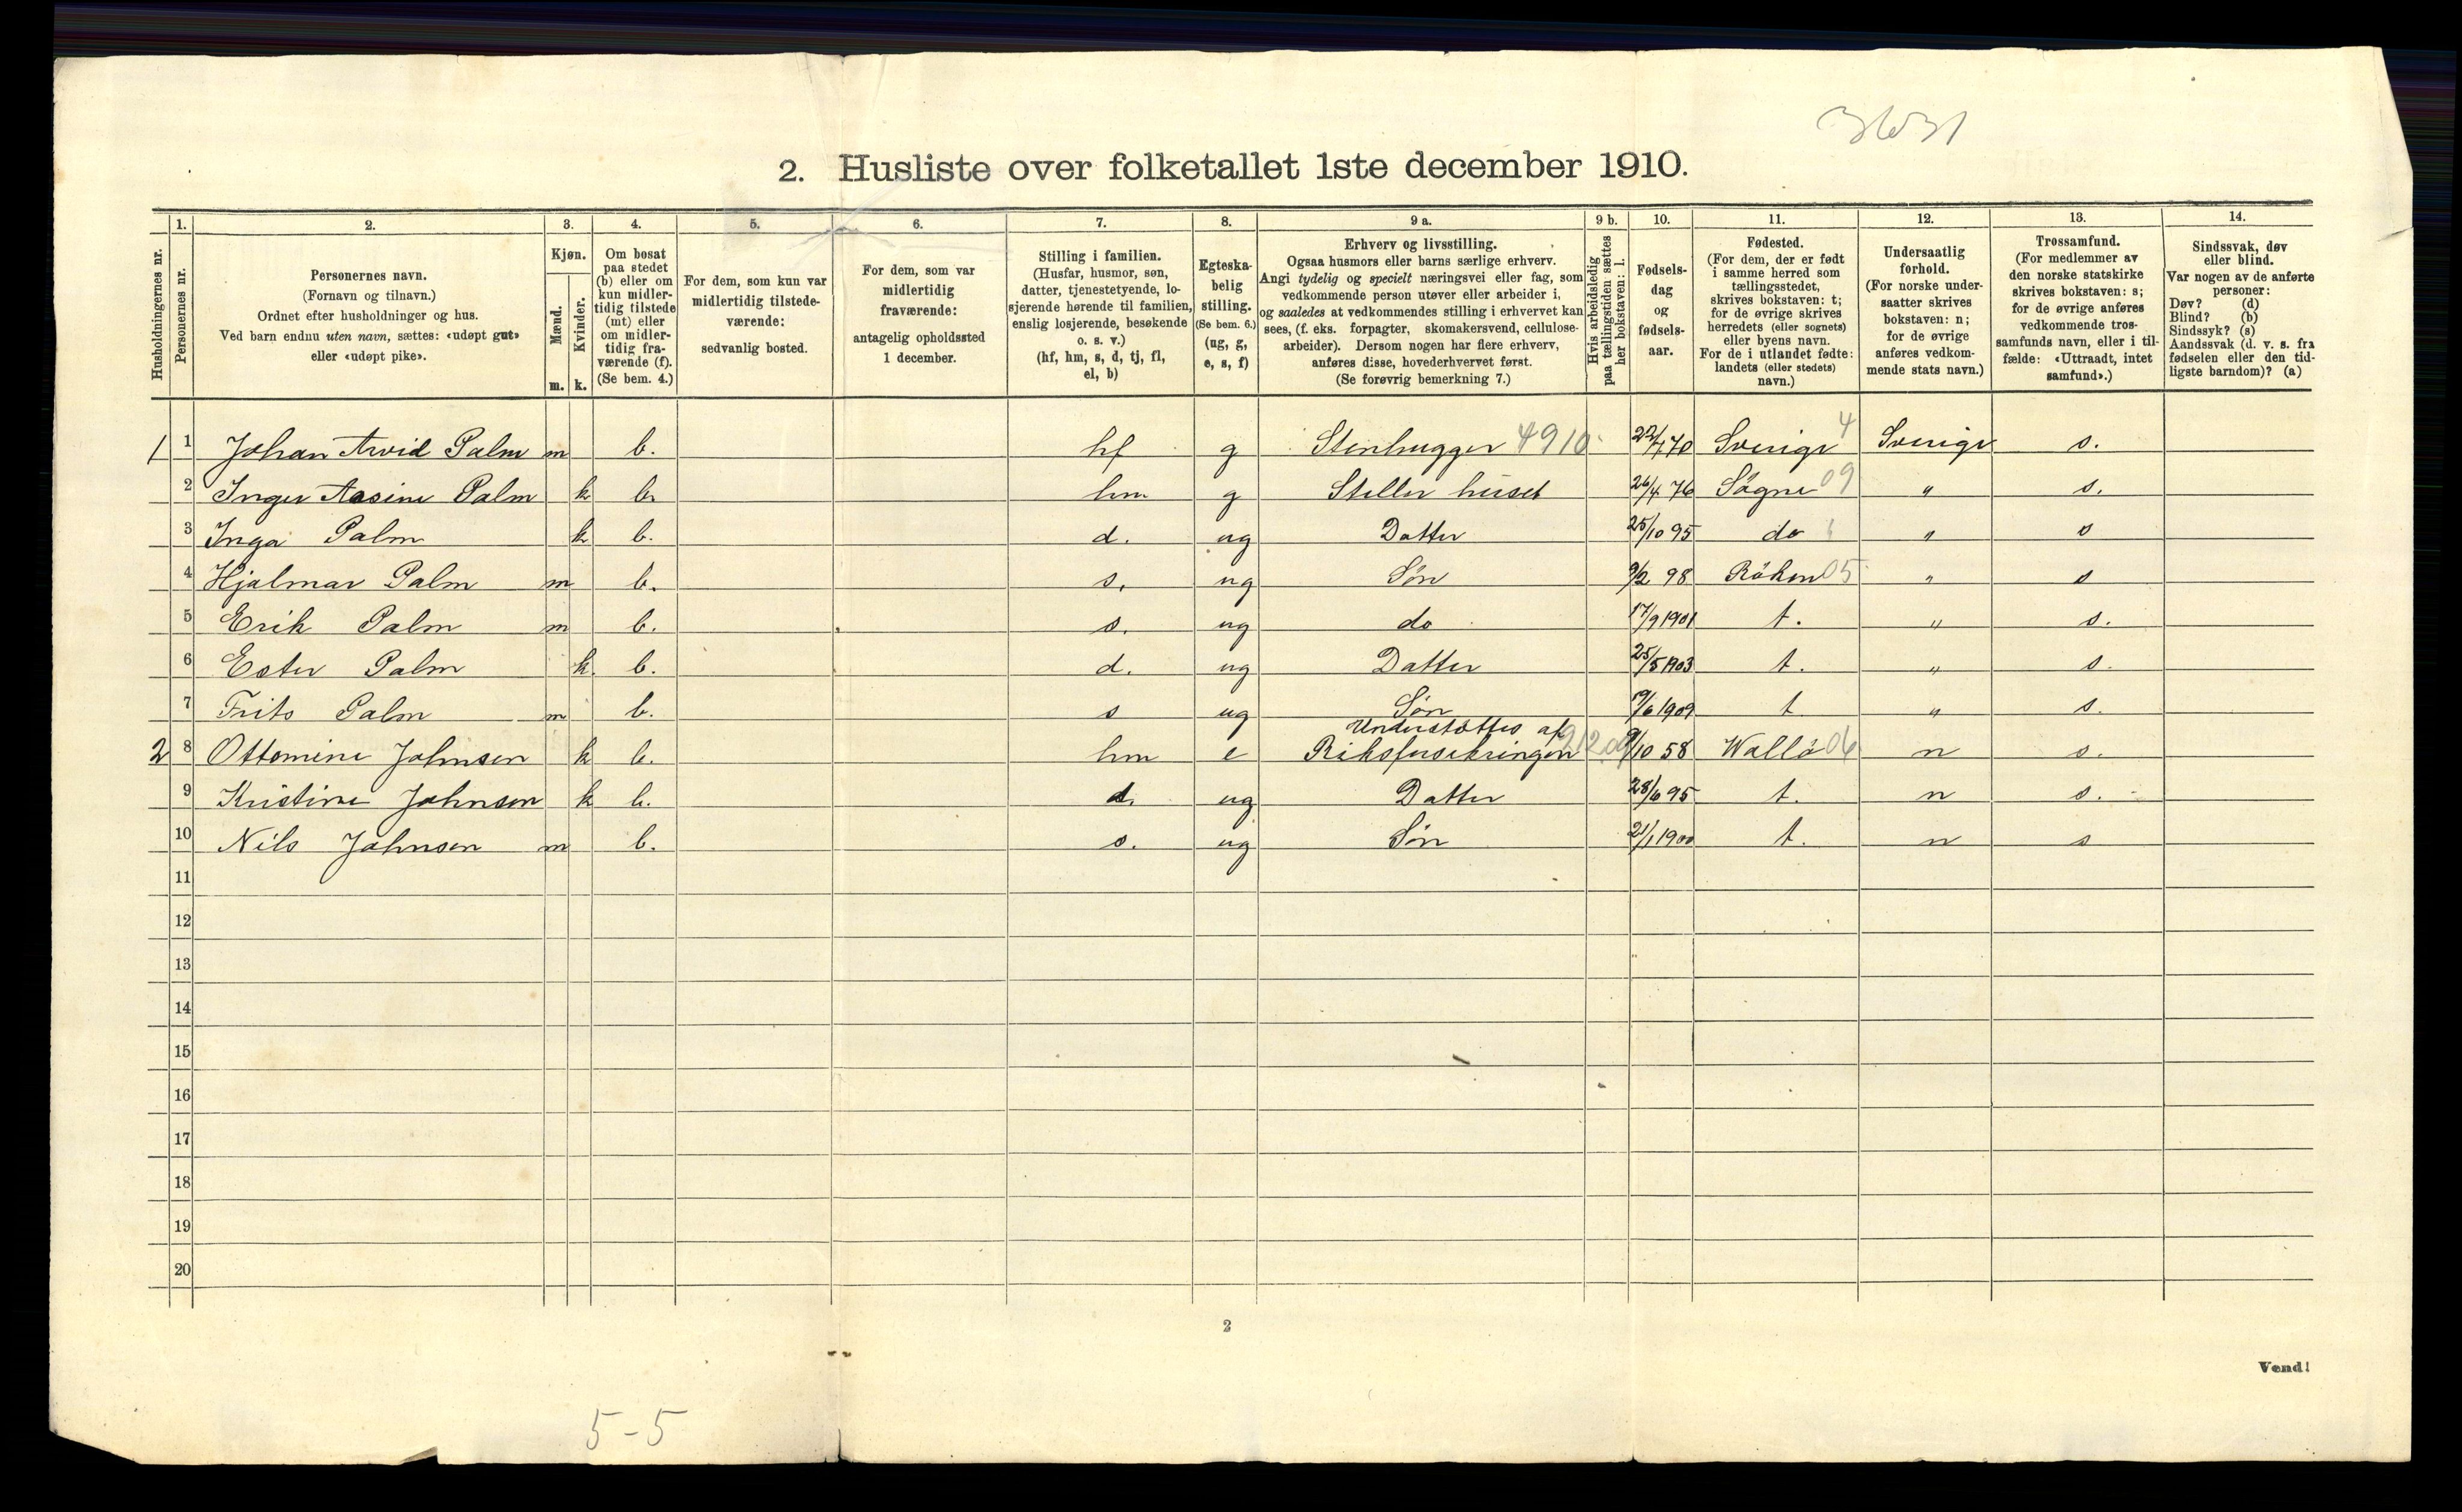 3631
2. Husliste over folketallet 1ste december 1910.
1. 2. 3. 4. 5. 6. 7. 8. 9 a. 9 b. 10. 11. 12. 13. 14.
Husholdningernes nr.
Personernes nr.
Personernes navn.
(Fornavn og tilnavn.)
Ordnet efter husholdninger og hus.
Ved barn endnu uten navn, sættes: «udøpt gut»
eller «udøpt pike».
Kjøn.
Mænd.
Kvinder.
m. k.
Om bosat
paa stedet
(b) eller om
kun midler-
tidig tilstede
(mt) eller
om midler-
tidig fra-
værende (f).
(Se bem. 4.)
For dem, som kun var
midlertidig tilstede-
værende:
sedvanlig bosted.
For dem, som var
midlertidig
fraværende:
antagelig opholdssted
1 december.
Stilling i familien.
(Husfar, husmor, søn,
datter, tjenestetyende, lo-
sjerende hørende til familien,
enslig losjerende, besøkende
o. s. v.)
(hf, hm, s, d, tj, fl,
el, b)
Egteska-
belig
stilling.
(Se bem. 6.)
(ug, g,
e, s, f)
Erhverv og livsstilling.
Ogsaa husmors eller barns særlige erhverv.
Angi tydelig og specielt næringsvei eller fag, som
vedkommende person utøver eller arbeider i,
og saaledes at vedkommendes stilling i erhvervet kan
sees, (f. eks. forpagter, skomakersvend, cellulose-
arbeider). Dersom nogen har flere erhverv,
anføres disse, hovederhvervet først.
(Se forøvrig bemerkning 7.)
Hvis arbeidsledig
paa tællingstiden sættes
her bokstaven: l.
Fødsels-
dag
og
fødsels-
aar.
Fødested.
(For dem, der er født
i samme herred som
tællingsstedet,
skrives bokstaven: t;
for de øvrige skrives
herredets (eller sognets)
eller byens navn.
For de i utlandet fødte:
landets (eller stedets)
navn.)
Undersaatlig
forhold.
(For norske under-
saatter skrives
bokstaven: n;
for de øvrige
anføres vedkom-
mende stats navn.)
Trossamfund.
(For medlemmer av
den norske statskirke
skrives bokstaven: s;
for de øvrige anføres
vedkommende tros-
samfunds navn, eller i til-
fælde: «Uttraadt, intet
samfund».)
Sindssvak, døv
eller blind.
Var nogen av de anførte
personer:
Døv? (d)
Blind? (b)
Sindssyk? (s)
Aandssvak (d. v. s. fra
fødselen eller den tid-
ligste barndom)? (a)
1 1 Johan Arvid Palm m b. hf g Stenhugger 4910 22/7 70 Sverige 4 Sverige s.
2 Inger Aasine Palm k b. hm g Steller huset 26/4 76 Søgne 09 " s.
3 Inga Palm k b. d. ug Datter 25/10 95 do " s
4 Hjalmar Palm m b. s. ug Søn 9/2 98 Röken 05 " s
5 Erik Palm m b. s. ug do 17/9 1901 t. " s.
6 Ester Palm k. b. d. ug Datter 25/5 1903 t. " s.
7 Frits Palm m b. s ug Søn /6 1909 t " s.
Understøttes af
2 8 Ottomine Johnsen k b. hm e Riksforsikringen /10 58 Wallø 06 n s.
9 Kristine Johnsen k b. d. ug Datter 28/6 95 t. n s.
10 Nils Johnsen m b. s. ug Søn 21/1 1900 t. n s
11
12
13
14
15
16
17
18
19
20
2
Vend!
5-5